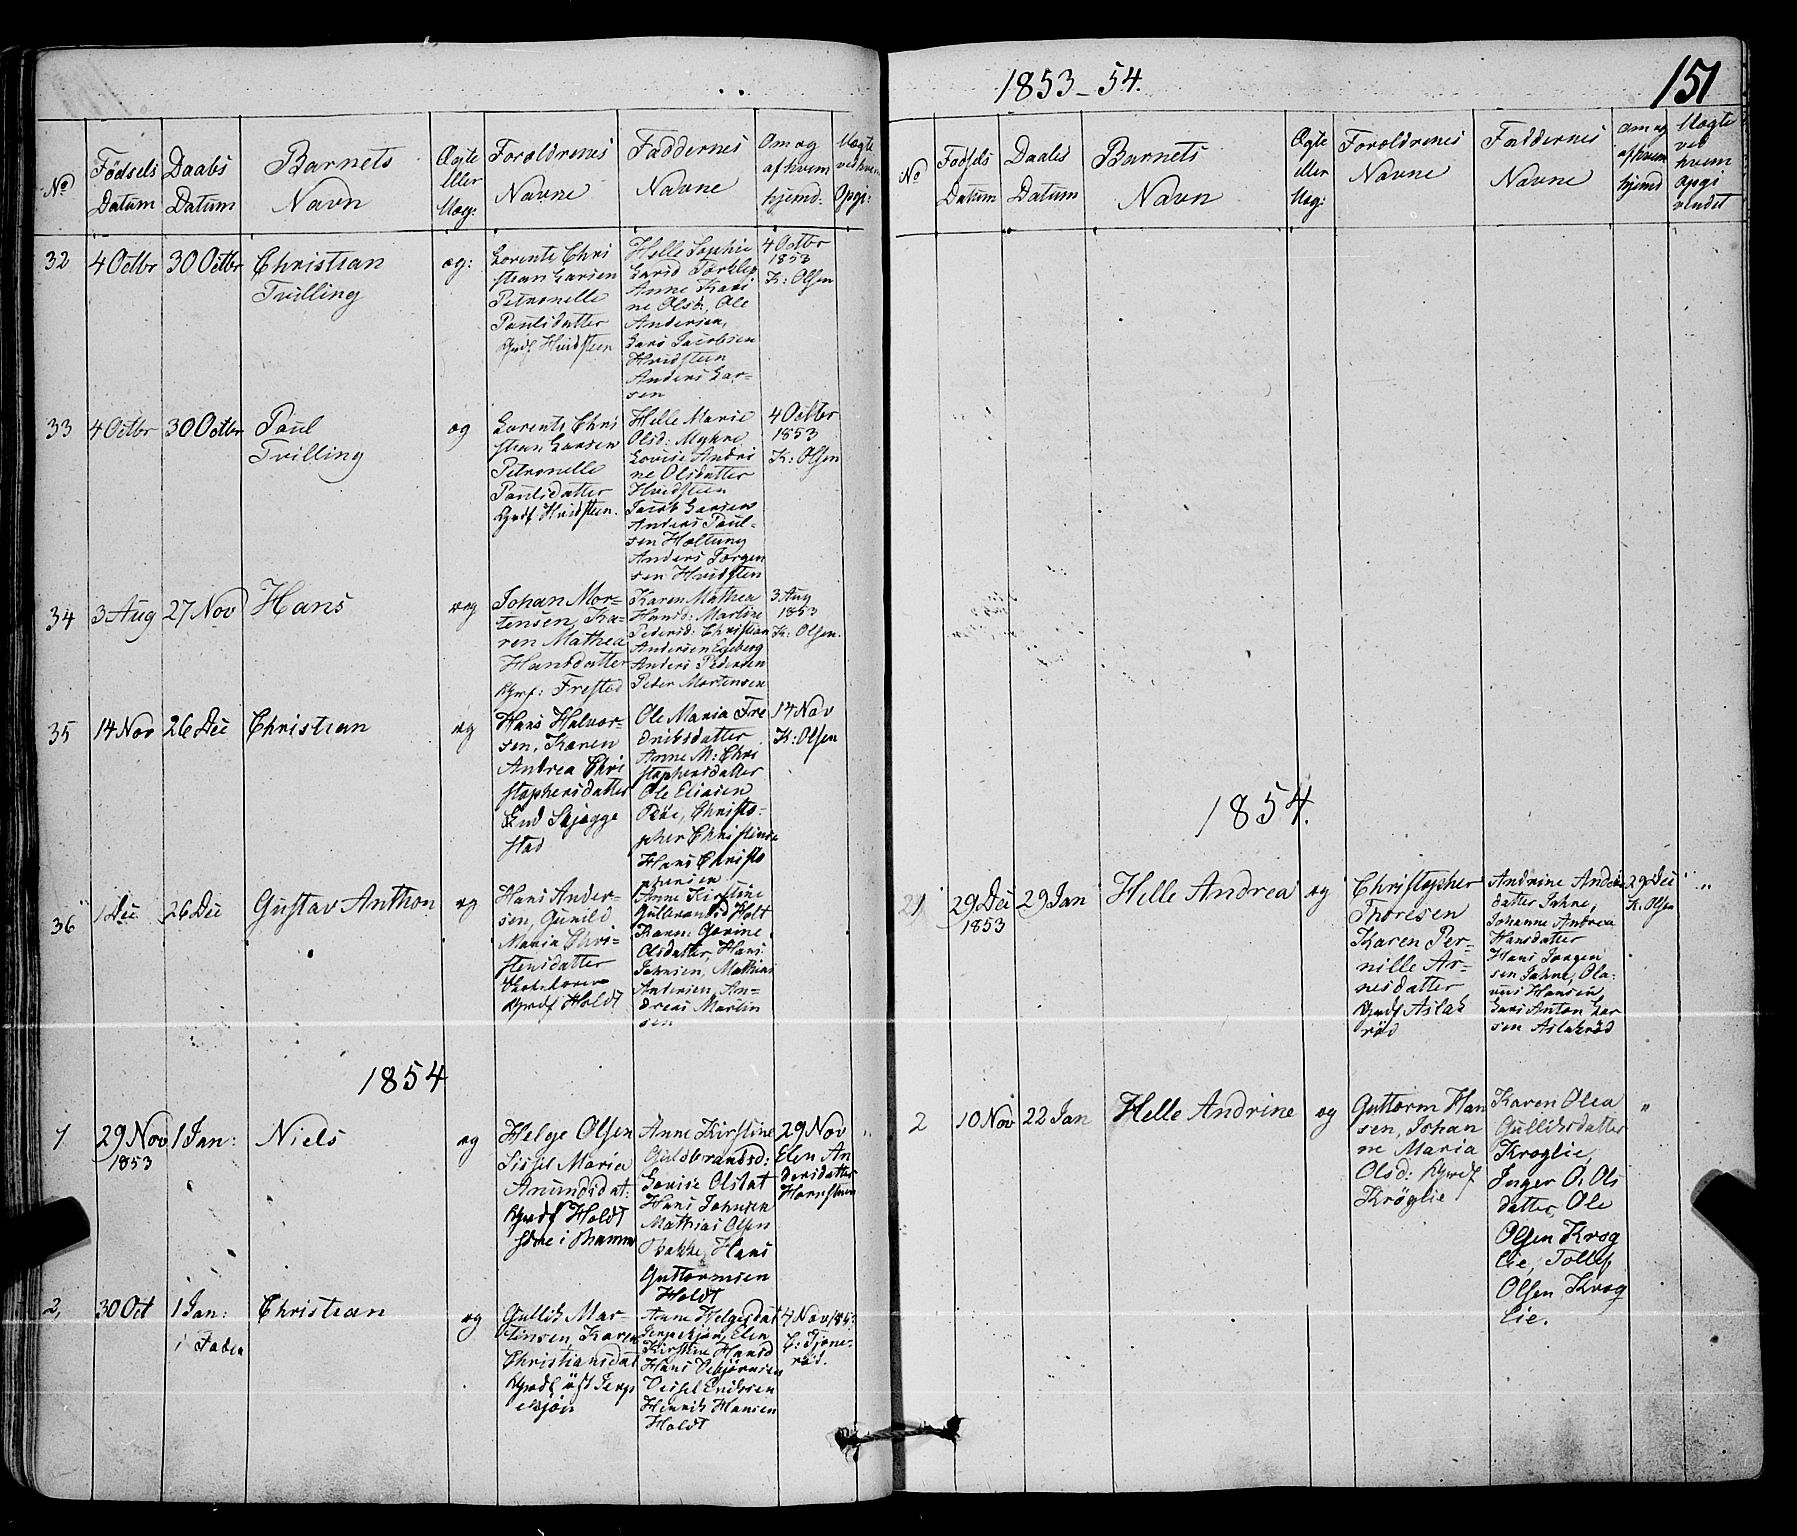 1853-54.
151
No
Fødsels
Datum
Daabs
Datum
Barnets
Navn
Ægte
eller
Uæg:
Forældrenes
Navne
Faddernes
Navne
Om og
af hvem
hjemd.
Uægte
ved hvem
Opgi:
32
4 Octbr
30 Octbr
Christian
Tvilling
æg:
Lorents Chri
stian Larsen
Petronelle
Paulsdatter
Hvidsteen
Helle Sophie
Anne Kari
ne Olsd:, Ole
Andersen,
Lars Jacobsen
Hvidsteen
Anders Lar-
sen
4 Octbr
1853
K: Olsen
33
4 Octbr
30 Octbr
Paul
Tvilling
æg
Lorents Chri
stian Larsen
Petronelle
Paulsdatter
Hvidsteen.
Helle Marie
Olsd: Myhre
Lovise Andri
ne Olsdatter
Hvidsteen
Jacob Larsen
Anders Paul-
sen Høltung
Anders Jørgen
sen Hvidsten
4 Octbr
1853
K: Olsen
34
3 Aug
27 Nov
Hans
æg
Johan Mor-
tensen, Ka-
ren Mathea
Hansdatter
Frestad
Karen Mathea
Hansd: Martine
Pedersd: Christian
Andersen Egeberg
Anders Pedersen
Peder Mortensen
3 Aug
1853
K: Olsen.
35
14 Nov
26 Dec
Christian
æg
Hans Halvor-
sen, Karen
Andrea Chri
stophersdatter
Skjægge
stad
Ole Maria Fre
driksdatter
Anne M: Chri
stophersdatter
Ole Eliasen
Christo-
pher Christense
Hans Christo
phersen
14 Nov
K: Olsen
36
1 Dec
26 Dec
Gustav Anthon
æg
Hans Ander-
sen, Gunild
Maria Chri-
stensdatter
Holdt
Anne Kirstine
Gulbrandsd Holt
Karen Gorine
Olsdatter, Hans
Johnsen, Mathias
Andersen, An-
dreas Martin
sen
1854
1
29 Nov
1853
1 Jan:
Niels
æg
Helge Olsen
Sissel Maria
Amundsdat:
Holdt
Anne Kirstine
Guldbrandsd:
Lovise Olsdat
Hans Johnsen
Mathias Olsen
Bakke, Hans
Guttormsen
Holdt
29 Nov
Elen An
dersdatter
Hornsteen
"
2,
30 Oct
1 Jan:
Christian
æg
Gullik Mar-
tinsen, Karen
Christiansdat
Anne Helgesdat
Elen
Kirstine Hansd
Hans
Henrik Hansen
Holdt
7 Nov 185
No
Fødsels
Datum
Daabs
Datum
Barnets
Navn
Ægte
eller
Uæg:
Forældrenes
Navne
Faddernes
Navne
om og
af hvem
hjemd
Uægte
ved
hvem
Opgi
vendet
1854.
29 Dec
1853
29 Jan
Helle Andrea
æg
Christopher
Thoresen
Karen Per-
nille Ar-
nesdatter
Aslak
rød
Andrine Anders
datter Jahre,
Johanne Andrea
Hansdatter
Hans Jørgen
sen Jahre, Ola-
nus Hansen
Lars Anton Lar
sen Aslakrød
29 Dec
K: Olsen
"
2
10 Nov
22 Jan
Helle Andrine
æg
Guttorm Han
sen, Johan
ne Maria
Olsd:
Krøglie
Karen Olea
Gulliksdatter
Krøglie,
Inger O: Ols
datter, Ole
Olsen Krøg
lie, Tollef
Olsen Krøg
lie.
"